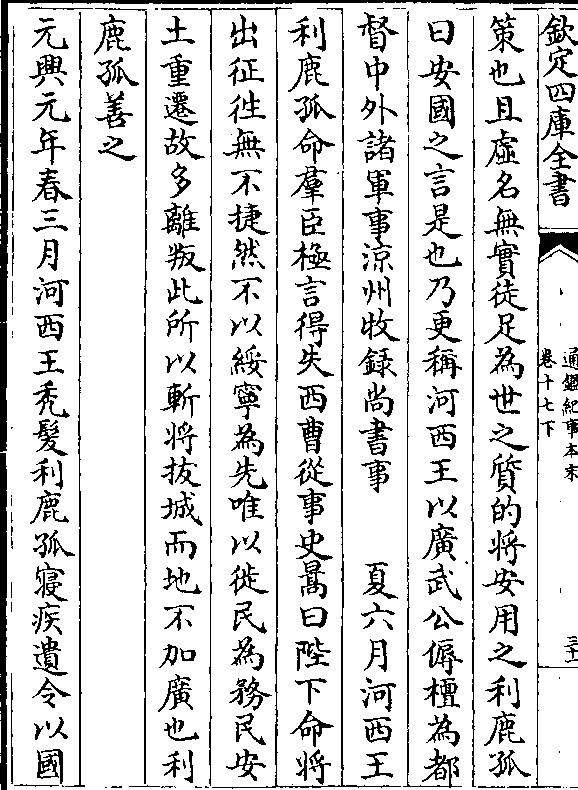 欽定四庫全書
通鑑紀事本末
卷十七下
三十一
策也且虛名無實徒足為世之質的將安用之利鹿孤
曰安國之言是也乃更稱河西王以廣武公傉檀為都
督中外諸軍事涼州牧錄尚書事　夏六月河西王
利鹿孤命羣臣極言得失西曹從事史暠曰陛下命將
出征徃無不捷然不以綏寧為先唯以徙民為務民安
土重遷故多離叛此所以斬將拔城而地不加廣也利
鹿孤善之
元興元年春三月河西王秃髮利鹿孤寢疾遺令以國